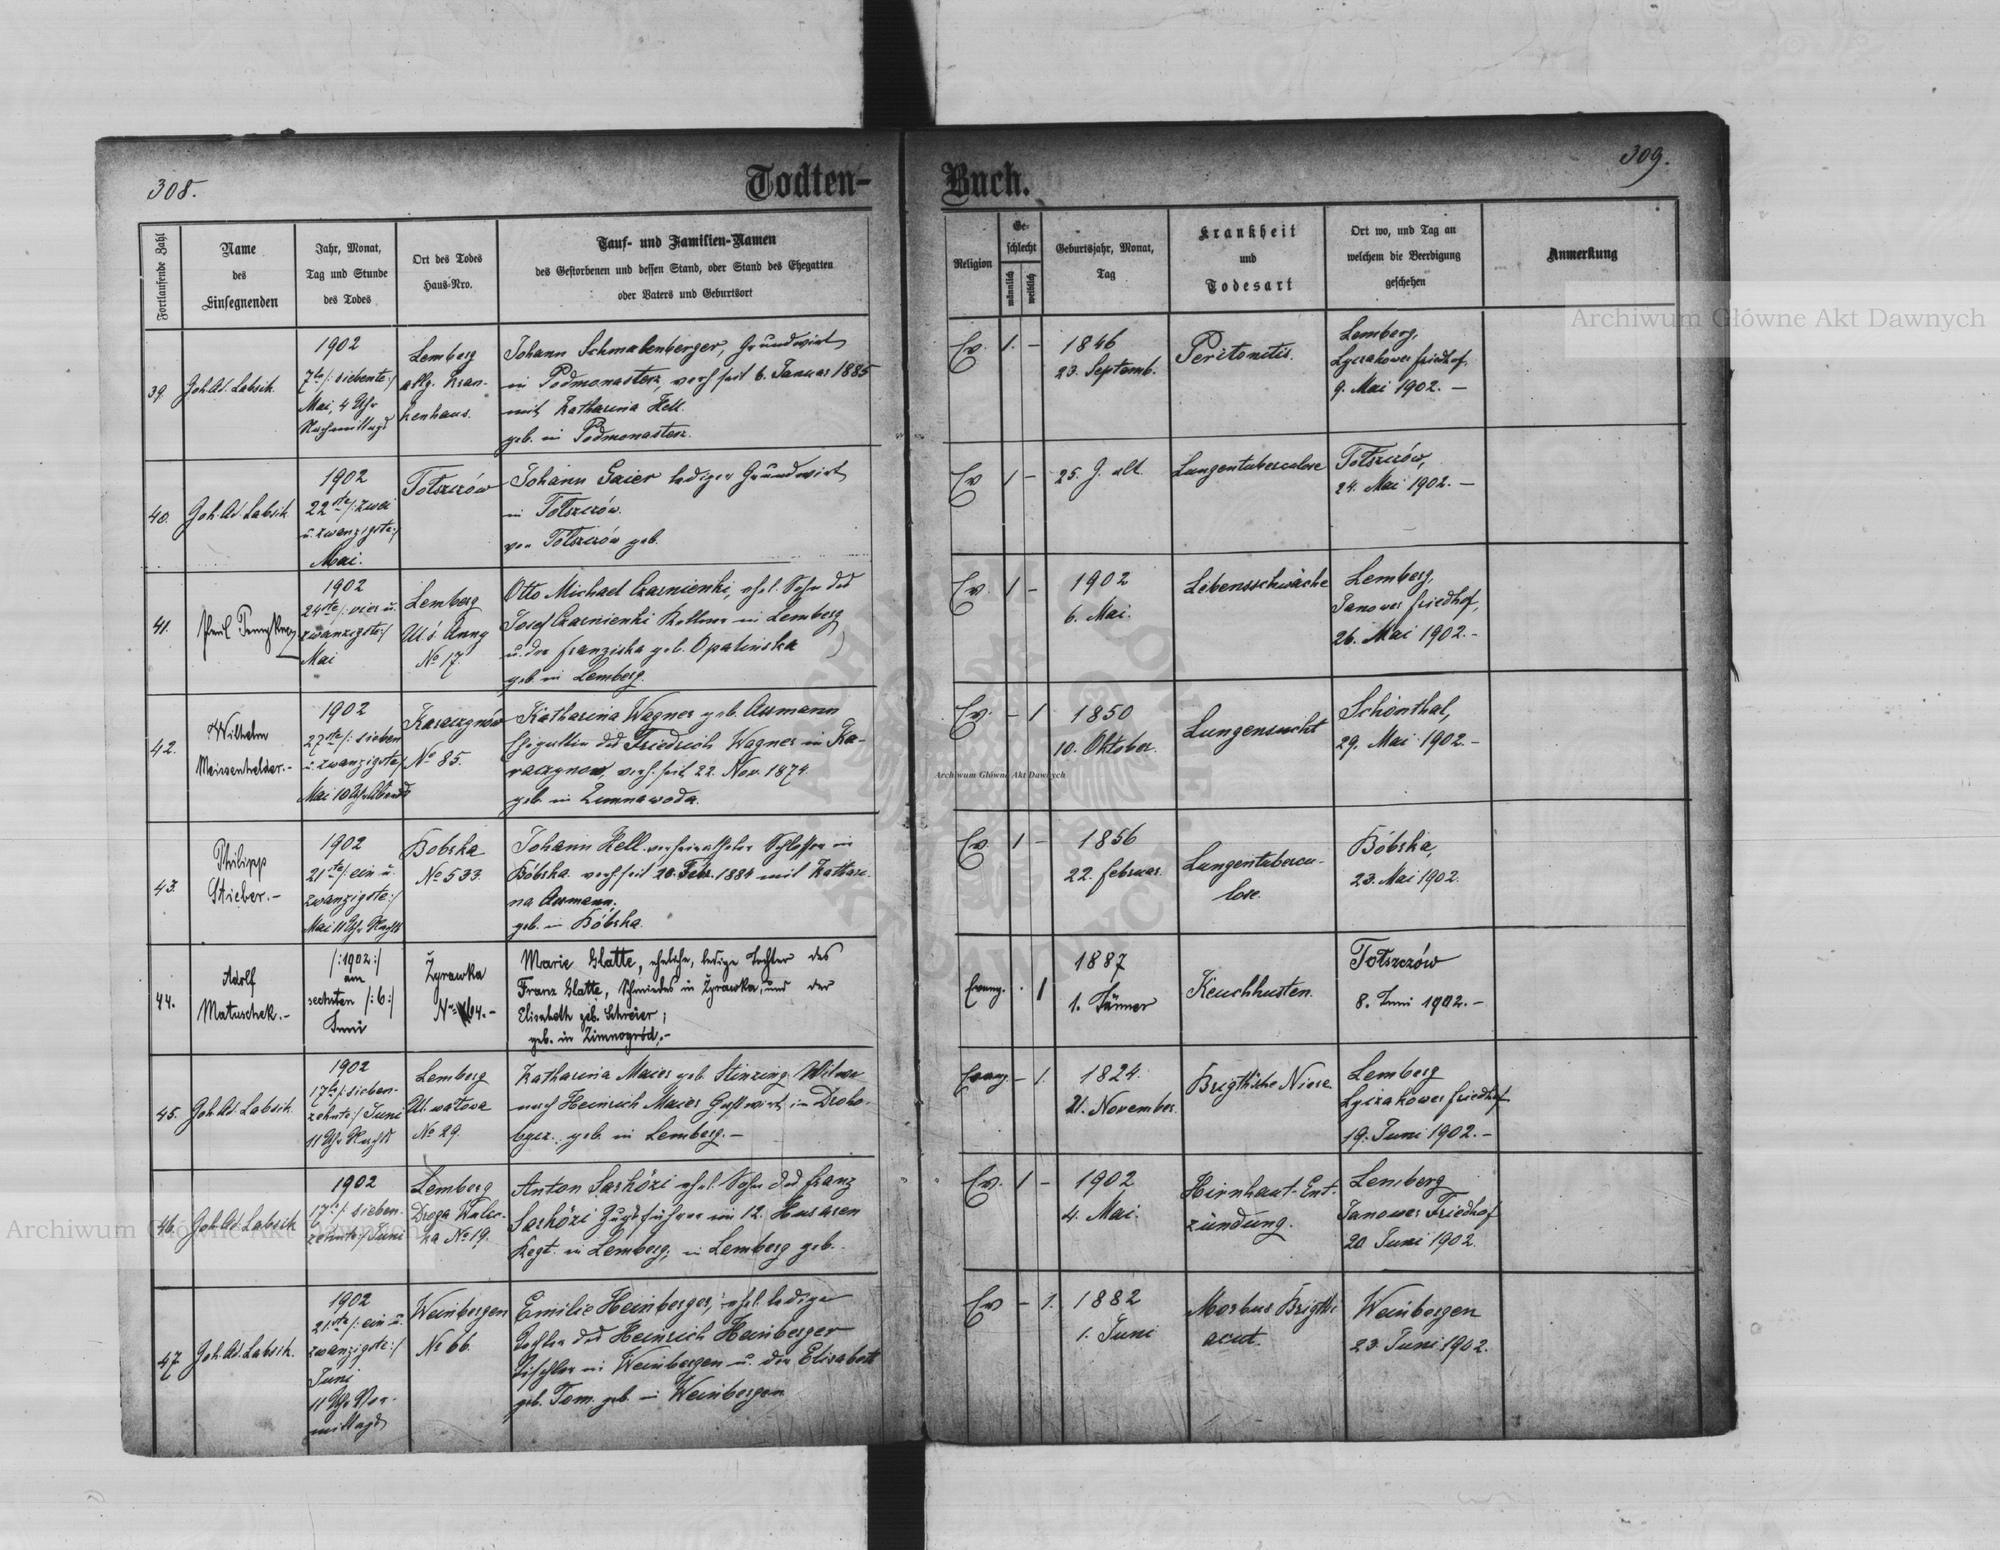 308.
Todten-
Fortlaufende Zahl
Name
des
Einsegnenden
Jahr, Monat,
Tag und Stunde
des Todes
Ort des Todes
Haus-Nro.
Tauf- und Familien-Namen
des Gestorbenen und dessen Stand, oder Stand des Ehegatten
oder Vaters und Geburtsort
39.
Joh. Ad. Labsik.
1902
7te /: siebente :/
Mai, 4 Uhr
Nachmittags
Lemberg
allg. Kran-
kenhaus.
Johann Schmalenberger, Grundwirt
in Podmonasterz, verh seit 6. Januar 1885
mit Katharina Hell.
geb. in Podmonasterz.
40.
Joh. Ad. Labsik
1902
22ste /: zwei
u. zwanzigste :/
Mai.
Totszczów
Johann Gaier lediger Grundwirt
in Totszczów.
von Totszczów geb.
41.
1902
24ste /: vier u.
zwanzigste :/
Mai
Lemberg
Ul. ś. Anny
No 17.
Otto Michael Czarnienki, ehel. Sohn des
Josef Czarnienki Kellner in Lemberg
u. der Franziska geb. Opalinska
geb. in Lemberg.
42.
Wilhelm
Meissenhelder.-
1902
27ste /: sieben
u. zwanzigste :/
Mai 10 Uhr Abends
Karaczynów
No 85.
Katharina Wagner geb. Assmann
Ehegattin des Friedrich Wagner in Ka-
raczynow, verh. seit 22. Nov. 1874.
geb. in Zimnawoda.
43.
Philipp
Stieber.-
1902
21ste /: ein u.
zwanzigste :/
Mai 11 Uhr Nachts
Bobrka
No 533.
Johann Hell verheiratheter Schlosser in
Bóbrka verh seit 20. Febr. 1884 mit Kathari-
na Assmann.
geb. in Bóbrka.
44.
Adolf
Matuschek.-
/: 1902 :/
am
sechsten /: 6 :/
Juni
Żyrawka
No 64.-
Marie Glatte, eheliche, ledige Tochter des
Franz Glatte, Schmiedes in Żyrawka, und der
Elisabeth geb. Schreier;
geb. in Zimnogród.-
45.
Joh. Ad. Labsik.
1902
17te /: sieben-
zehnte :/ Juni
11 Uhr Nachts
Lemberg
Ul. watova
No 29.
Katharina Maier geb. Stinzing, Witwe
nach Heinrich Maier Gastwirt in Droho-
bycz. geb. in Lemberg.-
46.
Joh. Ad. Labsik
1902
17te /: sieben-
zehnte :/ Juni
Lemberg
Droga Wulec-
ka No 19.
Anton Sarközi ehel. Sohn des Franz
Sarközi Zugsführer im 12. Husaren
Regt. in Lemberg, in Lemberg geb.
47
Joh. Ad. Labsik.
1902
21ste /: ein u.
zwanzigste :/
Juni
11 Uhr Vor-
mittags
Weinbergen
No 66.
Emilie Heinberger, ehel. ledige
Tochter des Heinrich Heinberger
Tischler in Weinbergen u. der Elisabeth
geb. Tom. geb. in Weinbergen
309.
Buch.
Religion
Ge-
schlecht
männlich
weiblich
Geburtsjahr, Monat,
Tag
Krankheit
und
Todesart
Ort wo, und Tag an
welchem die Beerdigung
geschehen
Anmerkung
Ev. 1. -
1846
23. Septemb.
Peritonitis.
Lemberg,
Lyczakower Friedhof,
9. Mai 1902. -
Ev 1 -
25. J. alt.
Lungentuberculose
Totszczów,
24. Mai 1902. -
Ev. 1 -
1902
6. Mai.
Lebensschwäche
Lemberg,
Janower Friedhof,
26. Mai 1902.-
Ev. - 1
1850
10. Oktober.
Lungensucht
Schönthal,
29. Mai 1902.-
Ev. 1 -
1856
22. Februar.
Lungentubercu-
lose.
Bóbrka,
23. Mai 1902.
Evang. . 1
1887
1. Jänner
Keuchhusten.
Totszczów
8. Juni 1902.-
Evang. - 1.
1824.
21. November.
Brigth'sche Niere
Lemberg
Lyczakower Friedhof
19. Juni 1902.-
Ev. 1 -
1902
4. Mai.
Hirnhaut-Ent-
zündung.
Lemberg
Janower Friedhof
20 Juni 1902.
Ev - 1.
1882
1. Juni
Morbus Brigthi
acut.
Weinbergen
23. Juni 1902.
Archiwum Główne Akt Dawnych
Archiwum Główne Akt Dawnych
Archiwum Główne Akt Dawnych